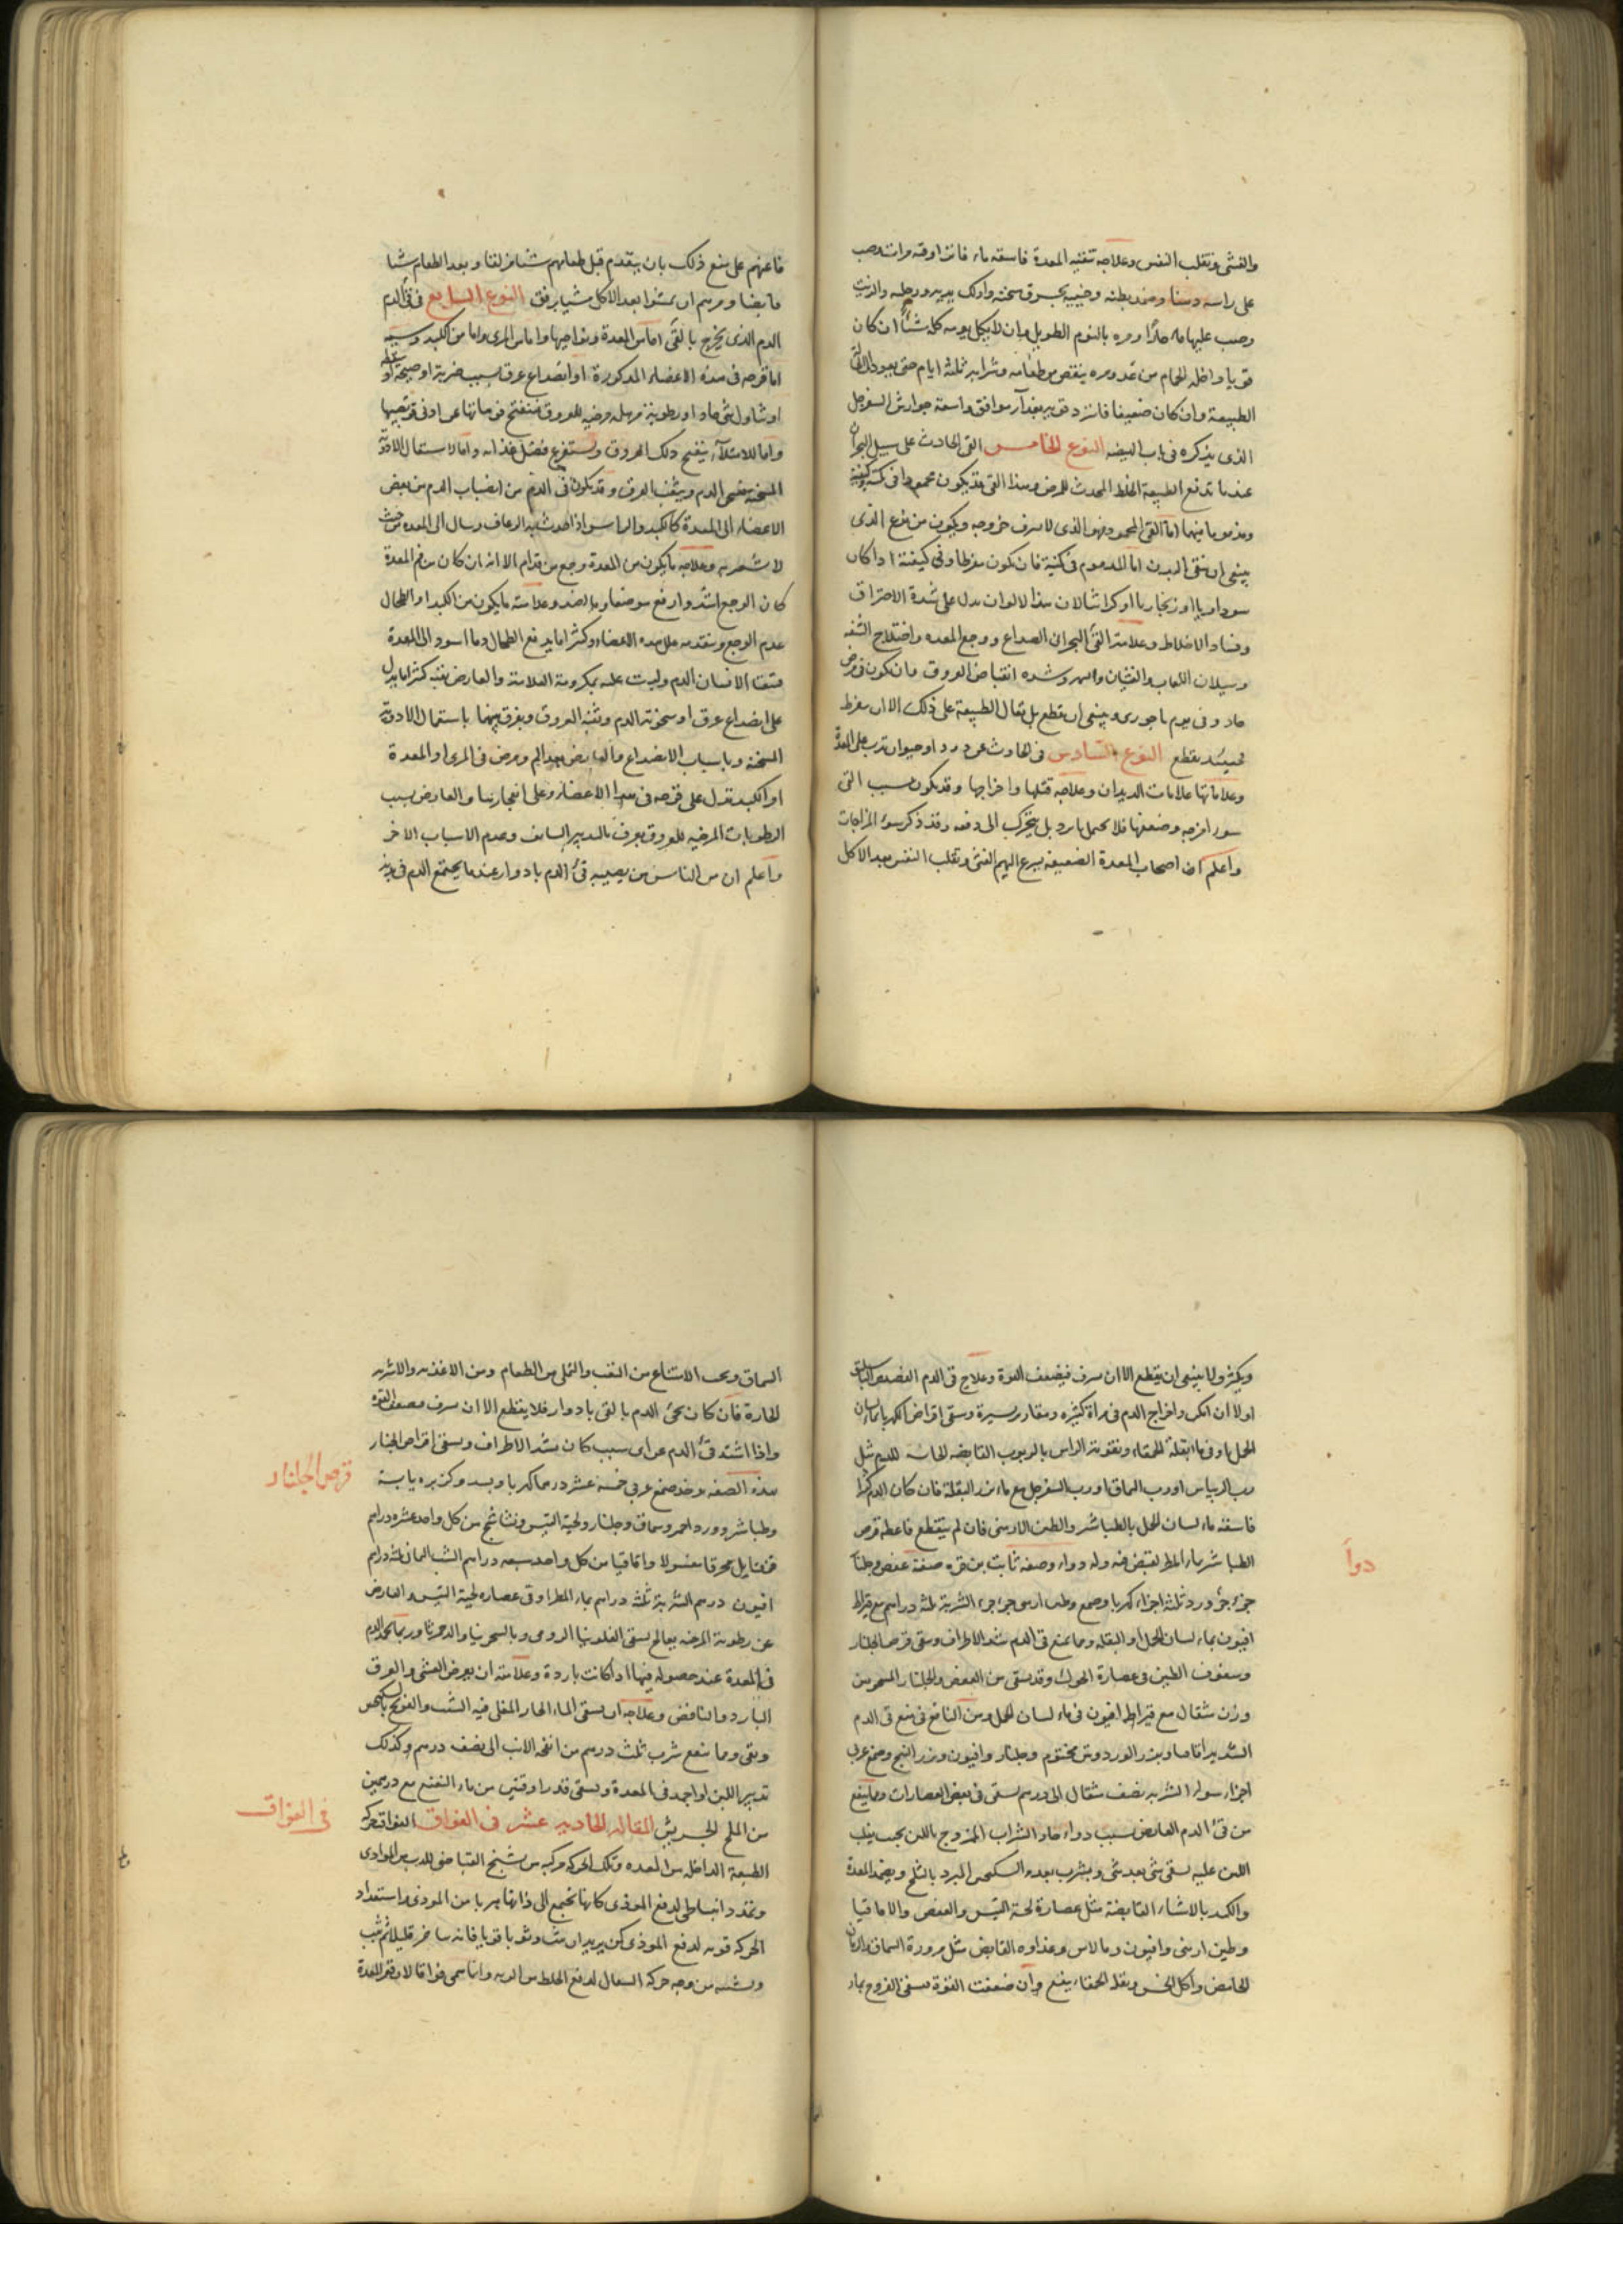 والغثى وتقلب النفس وعلاجه تنقيه المعدة فاسقه ماء فاترا وقه مرات وصب
على راسه دهنا ومرخ بطنه وجنبيه بخرق سخنه وادلك يديه ورجليه والزيت
وصب عليها ماء حارا ومره بالنوم الطويل وان لا ياكل يومه كله شئا ان كان
قويا وادخله الحمام من غد ومره ينقص من طعامه وشرابه ثلثة ايام حتى يعود الى
الطبيعة وان كان ضعيفا فازد قوته بغذاء موافق واسقه جوارش السفرجل
الذى نذكره فى باب الهيضه النوع الخامس القئ الحادث على سبيل البحران
عندما تدفع الطبيعة الخلط المحدث للمرض وهذا القئ قد يكون محمودا فى كميته وكيفيته
ومذموما فيهما اما القئ المحمود فهو الذى لا يسرف خروجه ويكون من نوع الذى
ينبغى ان ينقى البدن اما المذموم فى كميته فان يكون مفرطا وفى كيفيته اذا كان
سوداويا او زنجاريا او كراثيا لان هذه الالوان تدل على شدة الاحتراق
وفساد الاخلاط وعلامة القئ البحرانى الصداع ووجع المعده واختلاج الشفه
وسيلان اللعاب والغثيان وشده انقباض العروق وان يكون فى مرض
حاد وفى يوم باحورى وينبغى ان لا يقطع بل تعان الطبيعة على ذلك الا ان يفرط
فحينئذ يقطع النوع السادس فى الحادث عن دود او حيوان تدب على المعدة
وعلاماتها علامات الديدان وعلاجه قتلها واخراجها وقد يكون سبب القئ
سوء المزاج وضعفها فلا تحتمل ما يرد بل يتحرك الى دفعه وقد ذكر سوء المزاجات
واعلم ان اصحاب المعدة الضعيفه يسرع اليهم الغثى وتقلب النفس بعد الاكل
فاعنهم على منع ذلك بان يتقدم قبل طعامهم شئا مزلقا وبعد الطعام شيا
قابضا ومرهم ان يمشوا بعد الاكل مشيا برفق النوع السابع فى قئ الدم
الدم الذى يخرج بالقئ اما من المعدة ونواحيها واما من المرى واما من الكبد وسببه
اما قرحه فى هذه الاعضاء المذكورة او انصداع عرق بسبب ضربة او صيحة
او تناول شئ حاد او رطوبة مرهله مرخيه للعروق فتنفتح فوهاتها عن ادنى
واما للامتلاء ينفتح ذلك العروق ويستفرغ فضل غذائه واما لاستعمال الادوية
المسخنه يغلى الدم ويثقب العرق وقد يكون قئ الدم من انصباب الدم من بعض
الاعضاء الى المعدة كالكبد والراس اذا حدث شبه الرعاف وسال الى المعده من حيث
لا يشعر به وعلامه ما يكون من المعدة وجع من قدام الا انه ان كان من فم المعدة
كان الوجع اشد وارفع موضعا وبالضد وعلامته ما يكون من الكبد او الطحال
عدم الوجع وتقدم علل هذه الاعضاء وكثيرا ما يدفع الطحال دما اسود الى المعدة
فيتقيا الانسان الدم وليست علته بمكروهة العلامة والعارض بغتة كثيرا ما يدل
على انصداع عرق او سخونة الدم وثقبه العروق ويفرق بينهما باستعمال الادوية
المسخنه وباسباب الانصداع والعارض بعد الم ومرض فى المرى او المعدة
او الكبد تدل على قرحه فى هذه الاعضاء وعلى انفجارها والعارض بسبب
الرطوبات المرخيه للعروق يعرف بالتدبير السالف وعدم الاسباب الاخر
واعلم ان من الناس من يصيبه قئ الدم بادوار عندما يجتمع الدم فى بدنه
ويكثر ولا ينبغى ان يقطع الا ان يسرف فيضعف القوة وعلاج قئ الدم الفصد
اولا ان امكن واخراج الدم فى مراة كثيره ومقادير يسيرة وسقى اقراص الكهربا بماء لسان
الحمل او فى ماء البقلة الحمقاء وتقوية الراس بالربوب القابضه الحابسه للدم مثل
رب الريباس او رب السماق او رب السفرجل مع ماء بزر البقلة فان كان الدم كثيرا
فاسقه ماء لسان الحمل بالطباشير والطين الارمنى فان لم ينقطع فاعطه قرص
الطباشير بماء المطر لقبض فيه وله دواء وصفه ثابت بن قره صفته عفص وجلنار
دواء
جزء جزء ورد ثلثة اجزاء كهربا وصمغ وطين ارمنى جزء جزء الشربة ثلثة دراهم مع قيراط
افيون بماء لسان الحمل او البقله ومما يمنع قئ الدم شد الاطراف وسقى قرص الجلنار
وسفوف الطين فى عصارة الحمول وقد يسقى من العفص والجلنار المسحوق
وزن مثقال مع قيراط افيون فى ماء لسان الحمل ومن النافع فى منع قئ الدم
الشديد اقاقيا وبزر الورد وطين مختوم وجلنار وافيون وبزر البنج وصمغ عربى
اجزاء سواء الشربه نصف مثقال الى درهم يسقى فى بعض العصارات ومما ينفع
من قئ الدم العارض بسبب دواء حاد الشراب الممزوج باللبن بحيث يغلب
اللبن عليه يسقى شئ بعد شئ ويشرب بعده السكنجبين المبرد بالثلج ويضمد المعدة
والكبد بالاشياء القابضة مثل عصارة لحية التيس والعفص والاقاقيا
وطين ارمنى وافيون وماء الاس وغذاوه القابض مثل مزورة السماق والرمان
الحامض واكل الخس وبقلة الحمقاء ينفع وان ضعفت القوة فيسقى الفروج بماء
السماق ويجب الامتناع من التعب والتملى من الطعام ومن الاغذيه والاشربه
الحارة فان كان مجئ الدم بالقئ بادوار فلا يقطع الا ان يسرف فيضعف القوة
واذا اشتد قئ الدم من اى سبب كان فشد الاطراف ويسقى اقراص الجلنار
قرص الجلنار
بهذه الصفه يوخذ صمغ عربى خمسة عشر درهما كهربا وبسد وكزبره يابسة
وطباشير وورد احمر وسماق وجلنار ولحية التيس ونشاشتج من كل واحد عشره دراهم
قرن ايل محرقا مغسولا واقاقيا من كل واحد سبعه دراهم الشب اليمانى ثلثه دراهم
افيون درهم الشربة ثلثة دراهم بماء المطر او فى عصارة لحية التيس والعارض
عن رطوبة المرخيه يعالج بسقى الفلونيا الرومى وبالسجزنيا والدحمرثا وربما جمد الدم
فى المعدة عند حصوله فيها اذا كانت باردة وعلامته ان يعرض الغشى والعرق
البارد والنافض وعلاجه ان يسقى الماء الحار المغلى فيه الشبت والفودنج بالسكنجبين
ويقى ومما ينفع شرب ثلث درهم من انفحه الارنب الى نصف درهم وكذلك
تدبير اللبن لو اجمد فى المعدة ويسقى قدر اوقيتين من ماء النعنع مع درهمين
من الملح الجريش المقاله الحاديه عشر فى الفواق الفواق حركه
فى الفواق
الطبيعة الداخله من المعده وتلك الحركه مركبه من تشنج انقباضى للهرب من الموذى
وتمدد انبساطى لدفع الموذى كانها تجتمع الى ذاتها هربا من الموذى واستعداد
الحركه قويه لدفع الموذى كمن يريد ان يثب وثوبا قويا فانه يتاخر قليلا ثم يثب
ويشبه من وجه حركه السعال لدفع الخلط من الريه وانما سمى فواقا لان فم المعدة